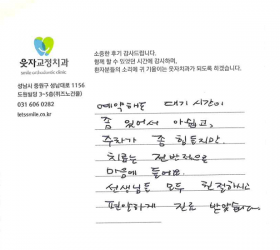 웃자교정치과
smile orthodontic clinic
성남시 중원구 성남대로 1156
드림빌딩 3~5층(위즈노건물)
031 606 0282
letssmile.co.kr
소중한 후기 감사드립니다.
함께 할 수 있었던 시간에 감사하며,
환자분들의 소리에 귀 기울이는 웃자치과가 되도록 하겠습니다.
예약해도 대기 시간이
좀 있어서 아쉽고,
주차가 좀 힘들지만
치료는 전반적으로
마음에 들어요.
선생님들 모두 친절하시고
편안하게 진료 받았습니다.